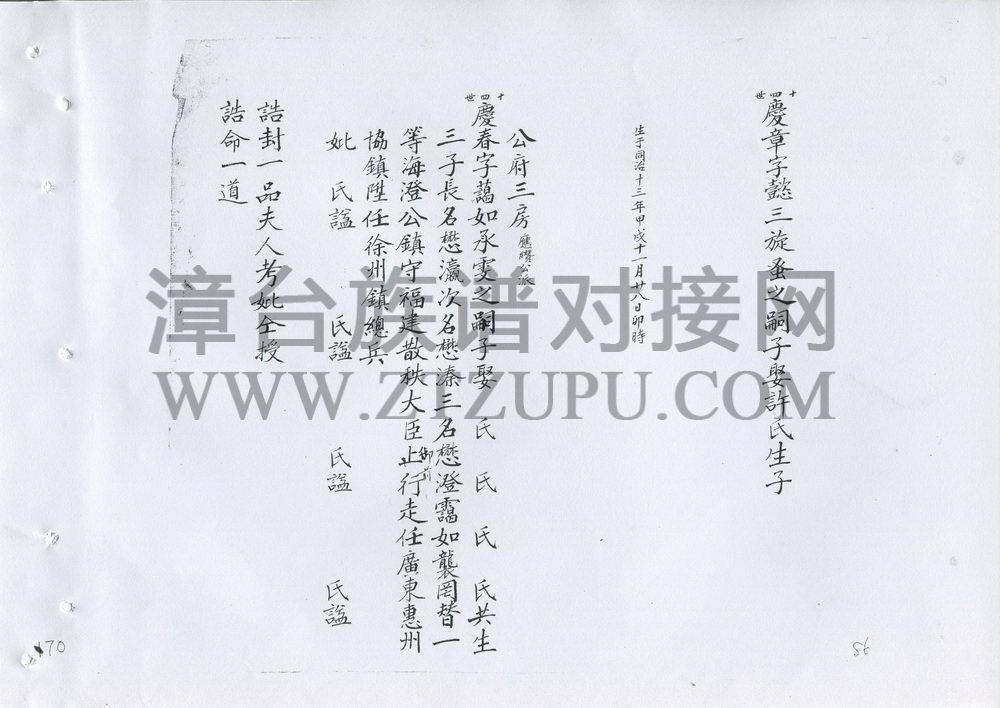 十四世
慶章字懿三旋蚤之嗣子娶許氏生子
生于同治十三年甲戌十一月廿八日卯時
公府三房應纘公派
十四世
慶春字藹如承雯之嗣子娶 氏 氏 氏 氏共生
三子長名懋瀛次名懋溱三名懋澄靄如襲罔替一
等海澄公鎮守福建散秩大臣御前止行走任廣東惠州
協鎮陞任徐州鎮總兵
妣 氏諡 氏諡 氏諡 氏諡
誥封一品夫人考妣仝授
誥命一道
漳台族谱对接网
WWW.ZTZUPU.COM
170
86